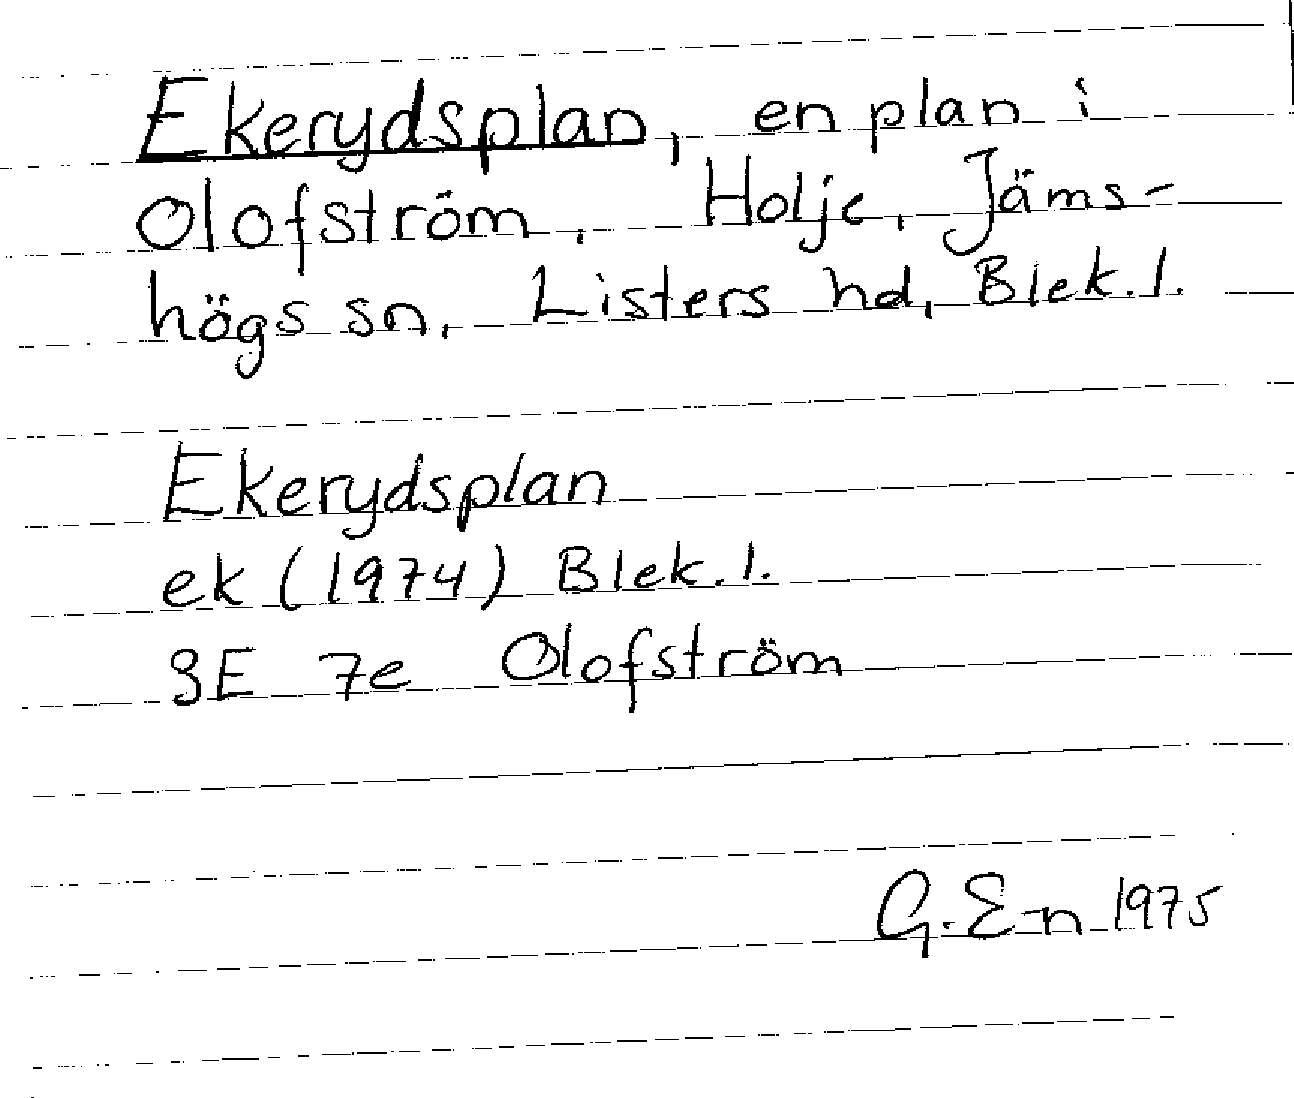 Ekerydsplan, en plan i
Olofström, Holje, Jäms-
högs sn, Listers hd, Blek.l.
Ekerydsplan
ek (1974) Blek.l.
3E 7e Olofström
G.E-n 1975